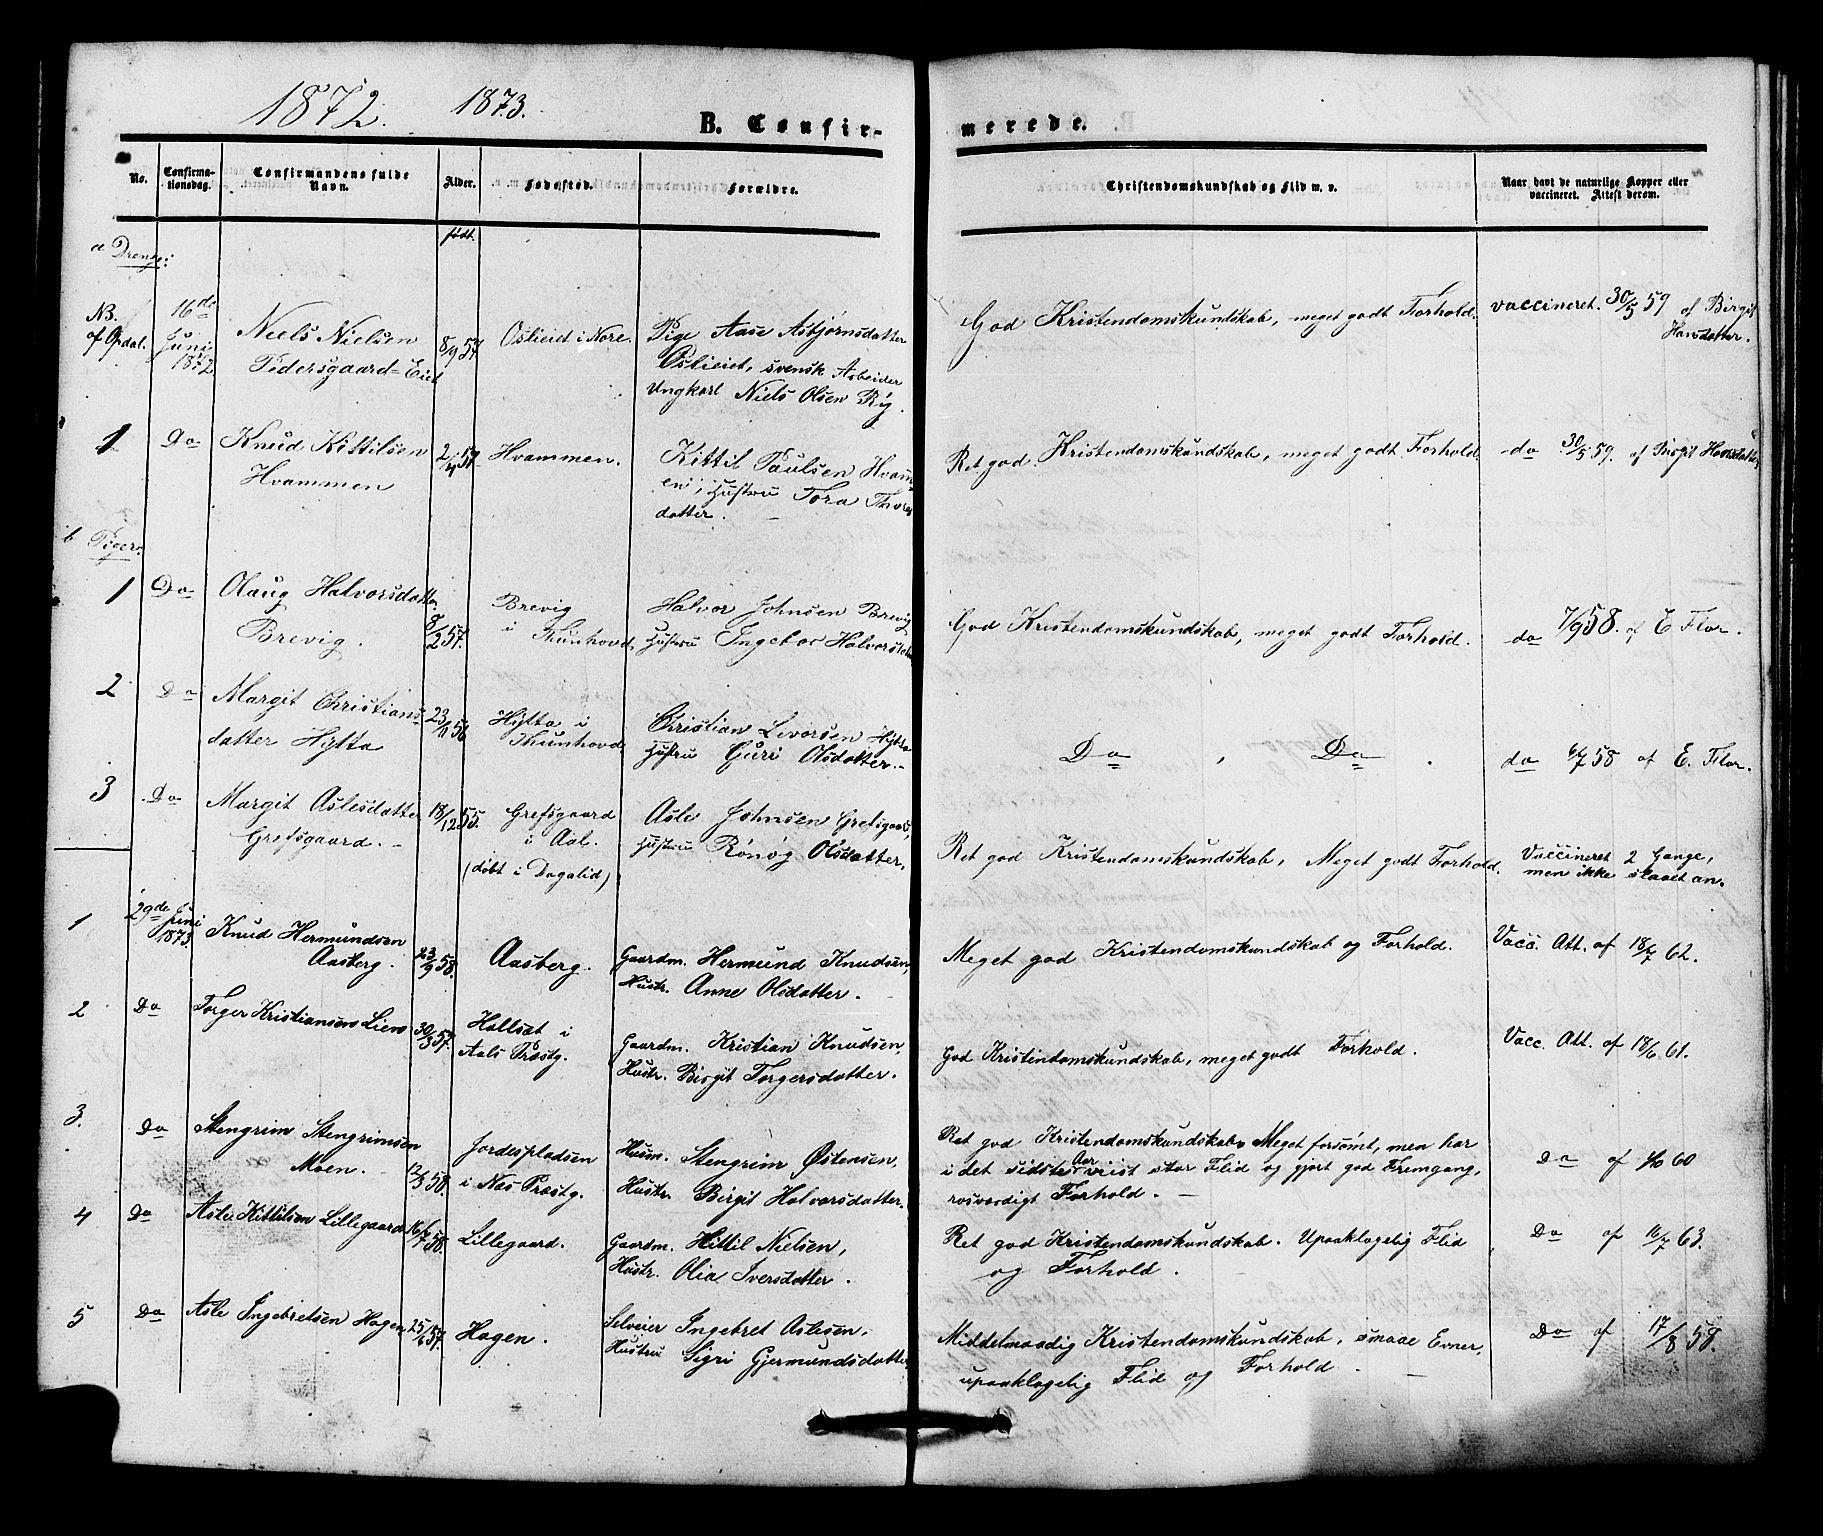 1872. 1873.
B. Confir-
merede.
No.
Confirma-
tionsdag.
Confirmandens fulde
Navn.
Alder.
Fødested.
Forældre.
Christendomskundskab og Flid m. v.
Naar havt de naturlige Kopper eller
vaccineret. Attest derom.
født
a Drenge:
NB.
af Opdal.
16de
Juni
1872
Niels Nielsen
Pedersgaard-Eiet
8/9 57.
Oslieiet i Nore.
Pige Aase Asbjørnsdatter
Oslieiet, svensk Arbeider
Ungkarl Niels Olsen Ry.
God Kristendomskundskab, meget godt Forhold.
vaccineret. 30/5 59 af Birgit
Hansdatter.
1
Do
Knud Kittilsen
Hvammen
2/4 57.
Hvammen.
Kittil Paulsen Hvam-
en, Hustru Tora Thores
datter.
Ret god Kristendomskundskab, meget godt Forhold.
do 30/5 59. af Birgit Hansdatter
b Piger.
1
Do
Olaug Halvorsdatter
Brevig.
8/2 57.
Brevig
i Thunhovd
Halvor Johnsen Brevig
Hustru Ingebor Halvorsdr
God Kristendomskundskab, meget godt Forhold.
do 7/9 58. af E Flor.
2
Do
Margit Christians-
datter Hytta
23/11 56
Hytta i
Thunhovd
Christian Livorsen Hytta
Hustru Guri Olsdatter.
Do , Do .
do 6/7 58 af E. Flor.
3
Do
Margit Aslesdatter
Grefsgaard.
18/12 55.
Grefsgaard
i Aal.
(døbt i Dagalid)
Asle Johnsen Grefsgaard,
Hustru Rönög Olsdatter.
Ret god Kristendomskundskab, Meget godt Forhold.
Vaccineret 2 Gange,
men ikke slaaet an.
1
29de Juni
1873.
Knud Hermundsen
Aasberg.
23/9 58.
Aasberg.
Gaardm. Hermund Knudsen,
Hustr. Anne Olsdatter.
Meget god Kristendomskundskab og Forhold.
Vacc. Att. af 18/7 62.
2
Do
Torger Kristiansen Lien
30/3 57.
Hallsat i
Aals Præstg.
Gaardm. Kristian Knudsen,
Hustr. Birgit Torgersdatter.
God Kristendomskundskab, meget godt Forhold.
Vacc. Att. af 18/6 61.
3.
Do
Stengrim Stengrimsen
Moen.
12/3 58.
Jordespladsen
i Næs Præstg.
Husm. Stengrim Østensen,
Hustr. Birgit Halvorsdatter.
Ret god Kristendomskundskab. Meget forsømt, men har
i det sidste Aar viist stor Flid og gjort god Fremgang,
rosværdigt Forhold.
Do af 1/10 60
4
Do
Asle Kittilsen Lillegaard
16/7 58.
Lillegaard.
Gaardm. Kittil Nielsen,
Hustr. Olia Iversdatter.
Ret god Kristendomskundskab. Upaaklagelig Flid
og Forhold.
Do af 16/7 63.
5
Do
Asle Ingebretsen Hagen
25/6 57.
Hagen.
Selveier Ingebret Aslesen,
Hustru Sigri Gjermundsdatter
Middelmaadig Kristendomskundskab, smaae Evner,
upaaklagelig Flid og Forhold
Do af 17/8 58.